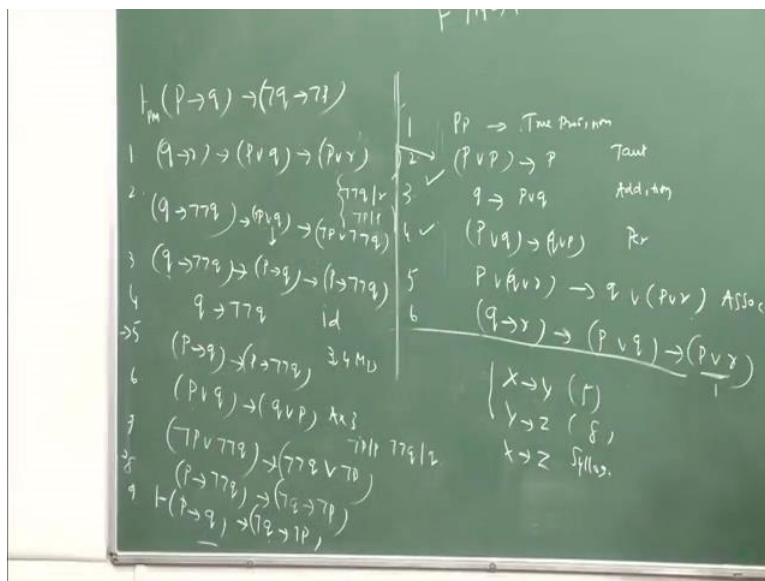 ⊢PM (P→q) → (⅂q→⅂P)
1 (q→r) → (P∨q) → (P∨r)
⅂⅂q/r
2. (q→⅂⅂q) → (⅂P∨q) → (⅂P∨⅂⅂q)
3 (q→⅂⅂q) → (P→q) → (P→⅂⅂q)
4 q→⅂⅂q id
→5 (P→q) → (P→⅂⅂q) 3,4 MP
6 (P∨q) → (q∨P) Ax3
7 (⅂P∨⅂⅂q) → (⅂⅂q∨⅂P) ⅂P/P ⅂⅂q/q
→8 (P→⅂⅂q) → (⅂q→⅂P)
9 ⊢(P→q) → (⅂q→⅂P)
1 PP →
2 (P∨P) → P Taut
3. ✓ q → P∨q Addition
4 ✓ (P∨q) → (q∨P) Per
5 P∨(q∨r) → q∨(P∨r) Assoc
6 (q→r) → (P∨q) → (P∨r)
1
X→Y (5)
Y→Z (8)
X→Z Syllog.